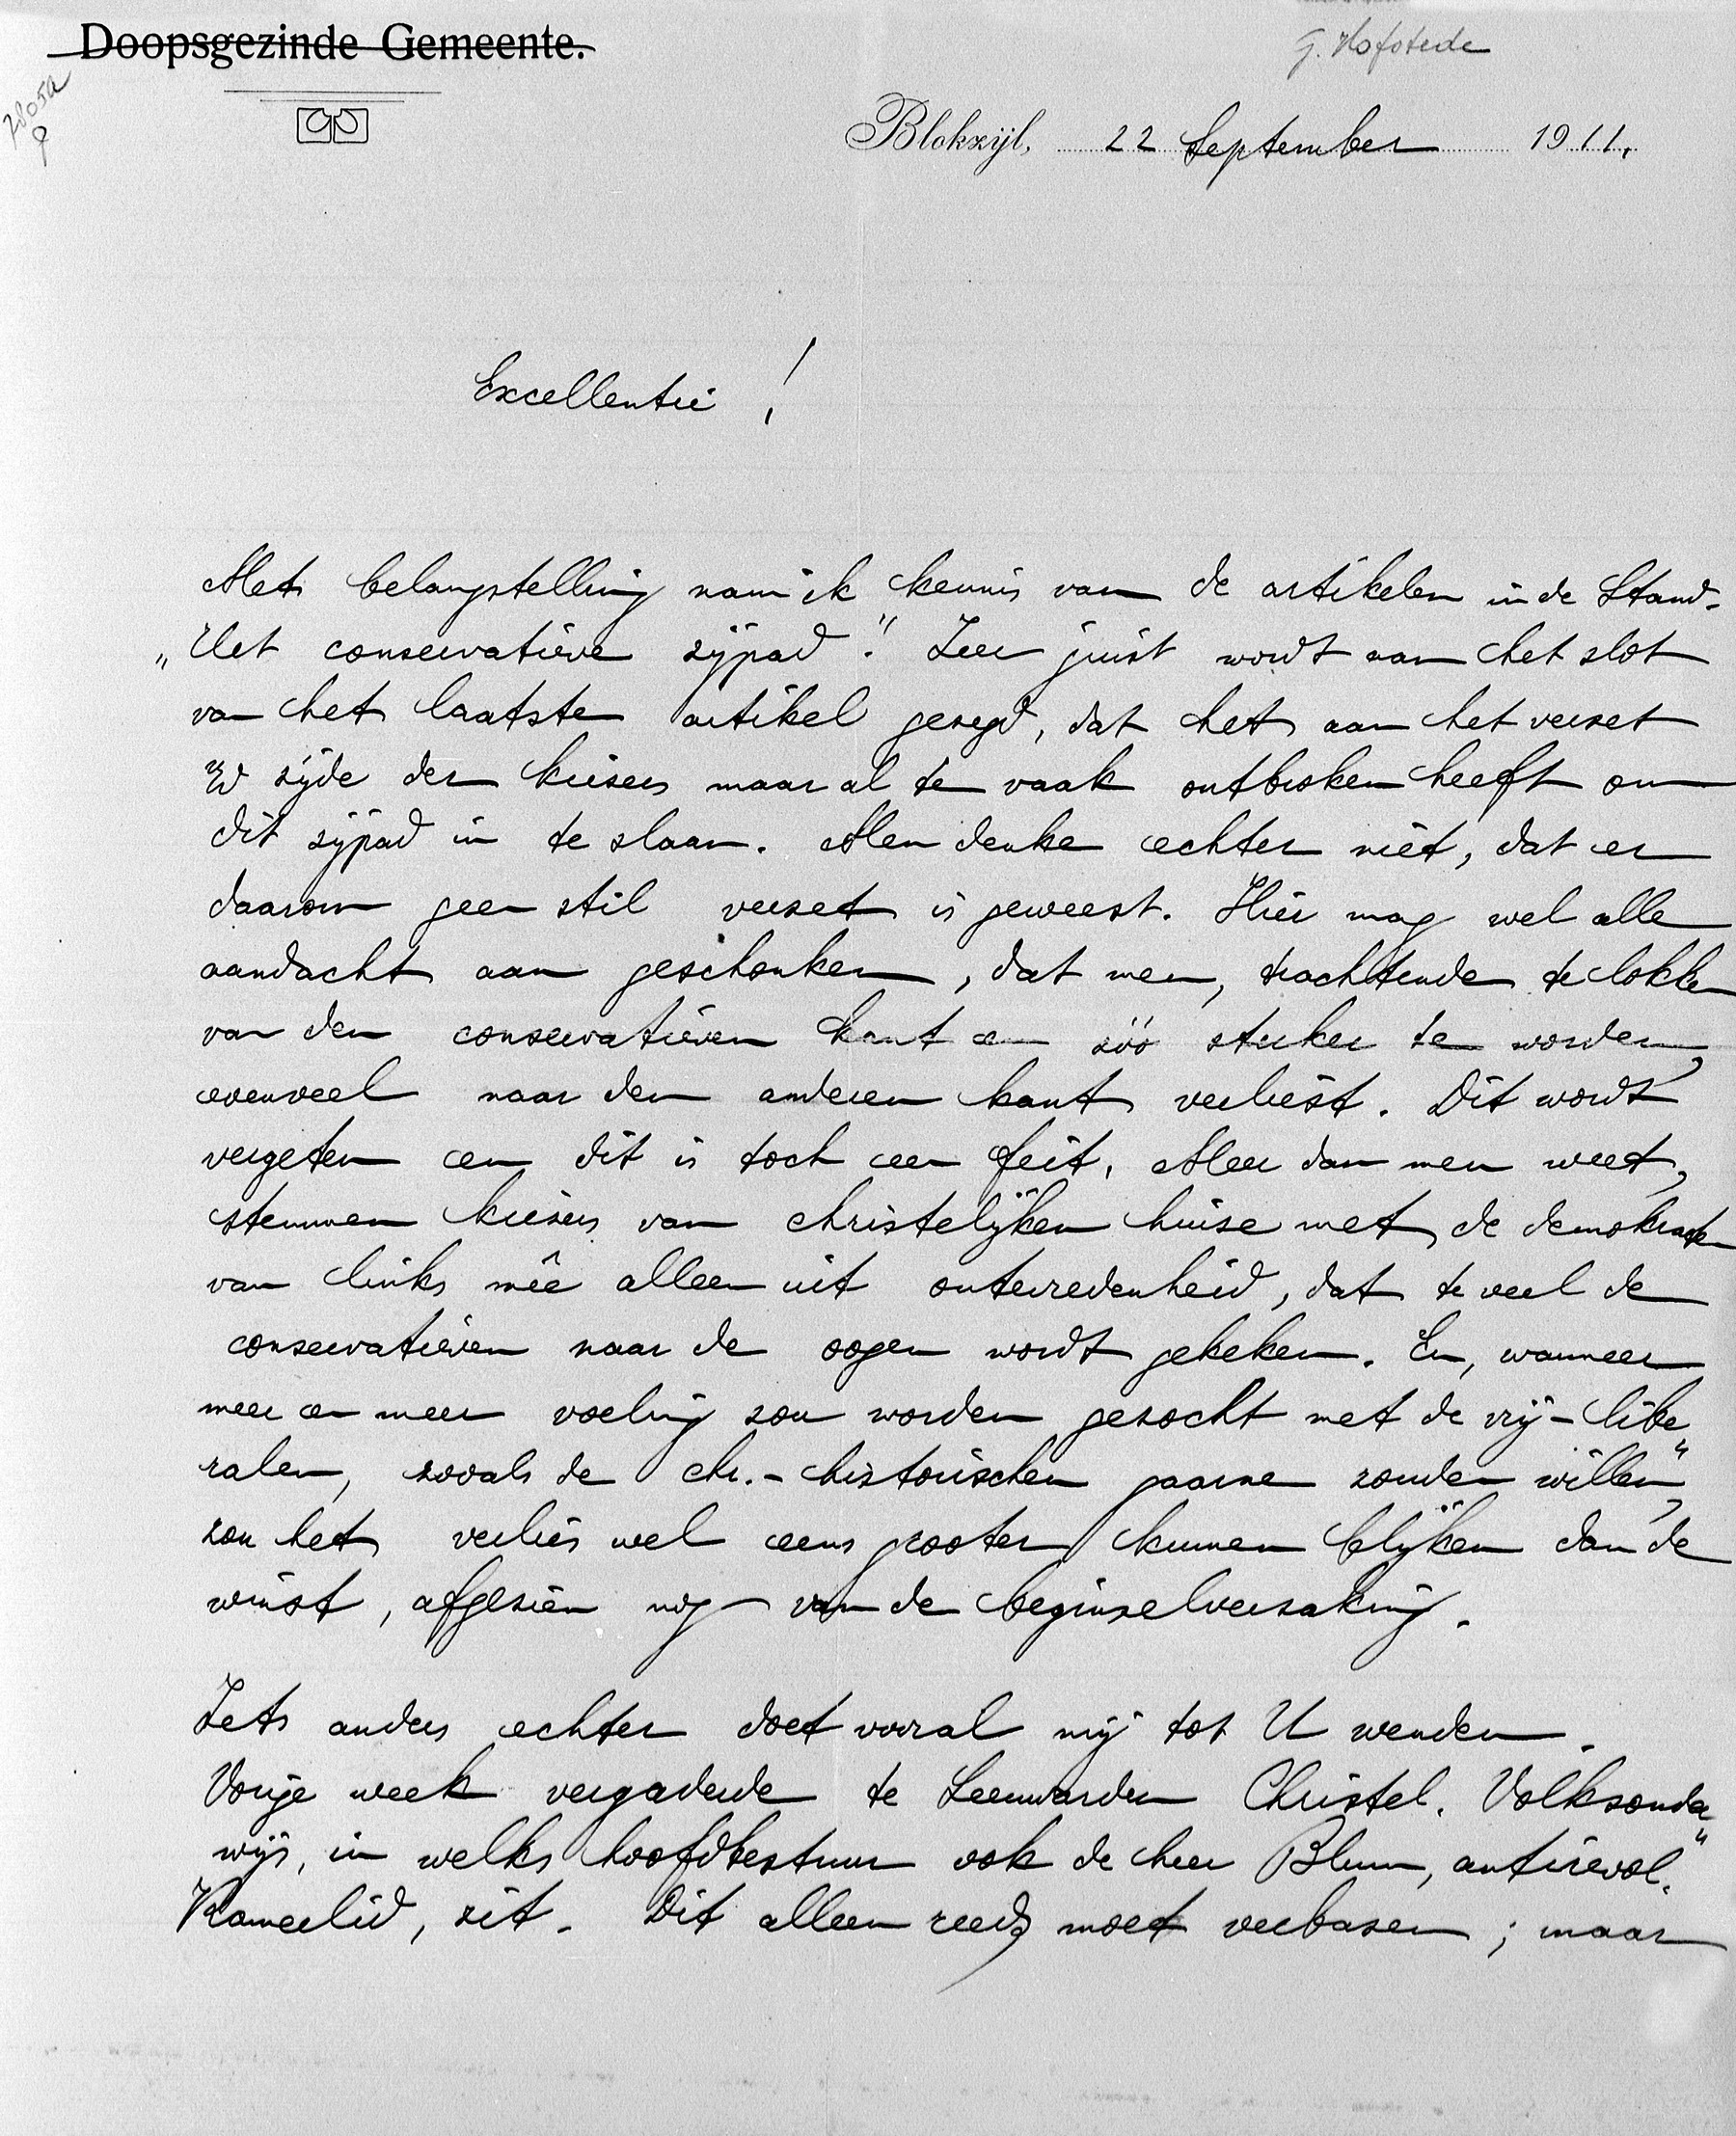 Doopsgezinde Gemeente.
G. Hofstede
7805a
Blokzijl, 22 September 1911.
Excellentie!
Met belangstelling nam ik kennis van de artikelen in de Stand.
„Het conservatieve zijpad". Zeer juist wordt aan het slot
van het laatste artikel gezegd, dat het aan het verzet
zijde der kiezers maar al te vaak ontbroken heeft om
dit zijpad in te slaan. Men denke echter niet, dat er
daarom geen stil verzet is geweest. Hier mag wel alle
aandacht aan geschonken, dat men, trachtende te lokken
van den conservatieven kant en zóó sterker te worden,
evenveel naar den anderen kant verliest. Dit wordt
vergeten en dit is toch een feit. Meer dan men weet,
stemmen kiezers van christelijken huize met de demokraten
van links mêe alleen uit ontevredenheid, dat te veel de
conservatieven naar de oogen wordt gekeken. En, wanneer
meer en meer voeling zou worden gezocht met de vrij-libe„
ralen, zooals de chr.-historischen gaarne zouden willen,
zou het verlies wel eens grooter kunnen blijken dan de
winst, afgezien nog van de beginselverzaking.
Iets anders echter doet vooral mij tot U wenden.
Vorige week vergaderde te Leeuwarden Christel. Volksonder„
wijs, in welks hoofdbestuur ook de heer Blum, antirevol.
Kamerlid, zit. Dit alleen reeds moet verbazen; maar